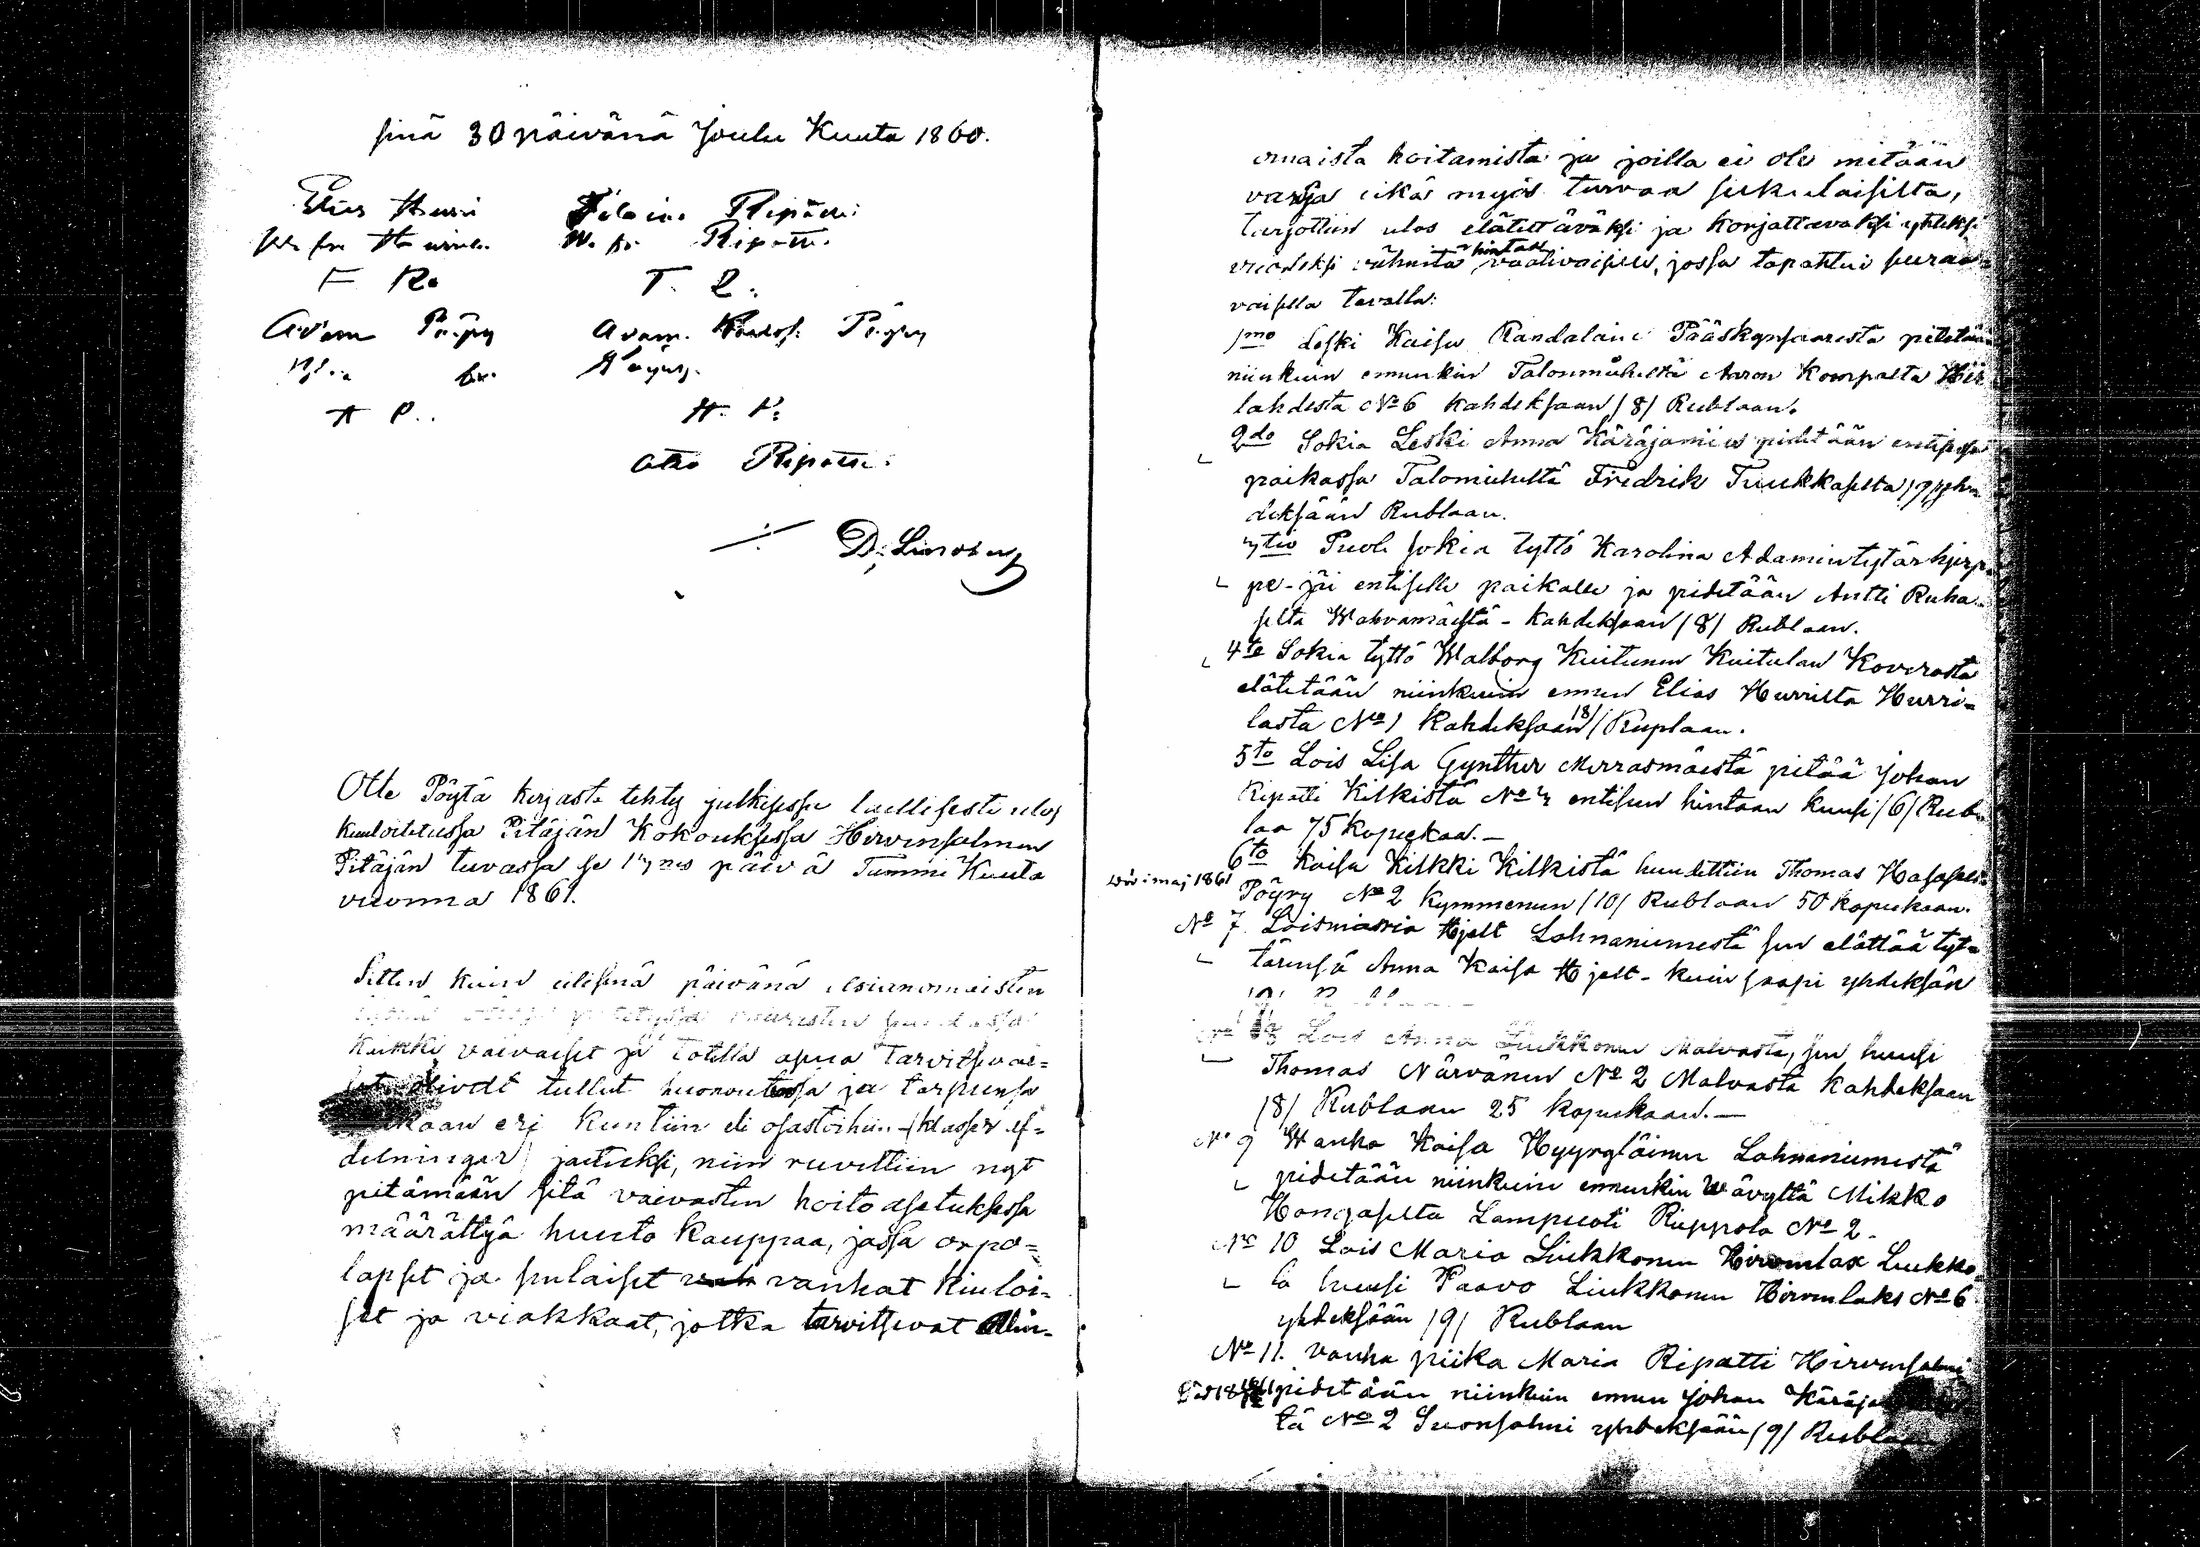 sinä 30 päivänä Joulu Kuuta 1860.
Elias Hurri
Ripatti
Ripatti.
F. R.
T. R.
Adam Pöyry
Adam Pöyry
A P..
H. P.
Otto Ripatti.
Ote Pöytä kirjasta tehty julkisessa laillisesti ulos
kuuloitetussa Pitäjän Kokouksessa Hirvensalmen
Pitäjän tuvassa se päivä Tammi Kuuta
vuonna 1861.
Sitten kuin eilisenä päivänä asianomaisten
kaikki vaivaiset ja totella apua tarvitsevai-
olivat tullut huonoutensa ja tarpeensa
mukaan eri kuntiin eli osastoihin (klasser af-
delningar) jaetuksi, niin ruvettiin nyt
pitämään sitä vaivasten hoito asetuksessa
määrättyä huuto kauppaa, jossa orpo-
lapset ja sulaiset vanhat kiuloi-
set ja viakkaat, jotka tarvitsevat
omaista hoitamista ja joilla ei ole mitään
varoja eikä myös turvaa sukulaisilta,
tarjottiin ulos elätettäväksi ja korjattavaksi yhdeksi
vuodeksi vähintä hintaa vaativaisille, jossa tapahtui seuraa-
vaisella tavalla:
1mo Leski Kaisa Randalain Pääskynsaaresta pidetään
niinkuin ennenkin Talonmieheltä Aaron Kompalta Hir
lahdesta No 6 kahdeksaan /8/ Rublaan.
2do Sokia Leski Anna Käräjamies pidetään entisessä
paikassa Talomieheltä Fredrik Tuukkaselta /9/ yh-
deksään Rublaan.
3tio Puoli sokia tyttö Karolina Adamintytär hjerp-
pe - jäi entiselle paikalle ja pidetään Antti Ruha-
selta Wahvamäestä - kahdeksaan /8/ Rublaan.
4to Sokia tyttö Walborg Kuitunen Kuitulan Koverosta
elätetään niinkuin ennen Elias Hurrilta Hurri-
lasta No 1 Kahdeksaan /8/ Ruplaan.
5to Lois Lisa Gynther Merrasmäestä pitää Johan
Ripatti Kilkistä No 3 entiseen hintaan kuusi /6/ Rub-
laa 75 kopeekaa. -
6to Kaisa Kilkki Kilkistä huudettiin Thomas
maj 1861
Pöyry No 2 Kymmenen /10/ Rublaan 50 kopeekaan.
No 7. Loismaria Hjelt Lahnaniemestä sen elättää tyt-
tärensä Anna Kaisa Hjelt - kuin saapi yhdeksän
Lois Anna Liukkonen Malvasta, sen huusi
Thomas Närvänen No 2 Malvasta kahdeksaan
/8/ Rublaan 25 kopeekaan. -
No 9 Wanha Kaisa Hyyryläinen Lahnaniemestä
pidetään niinkuin ennenkin Wävyltä Mikko
Hongaselta Lampuoti Ruppola No 2.
No 10 Lois Maria Liukkonen Hirvenlax Liukko-
la huusi Paavo Liukkonen Hirvenlaks No 6
yhdeksään /9/ Rublaan
No 11. Vanha piika Maria Ripatti Hirvensalmi
pidetään niinkuin ennen Johan
tä No 2 Suonsalmi yhdeksään /9/ Rublaan